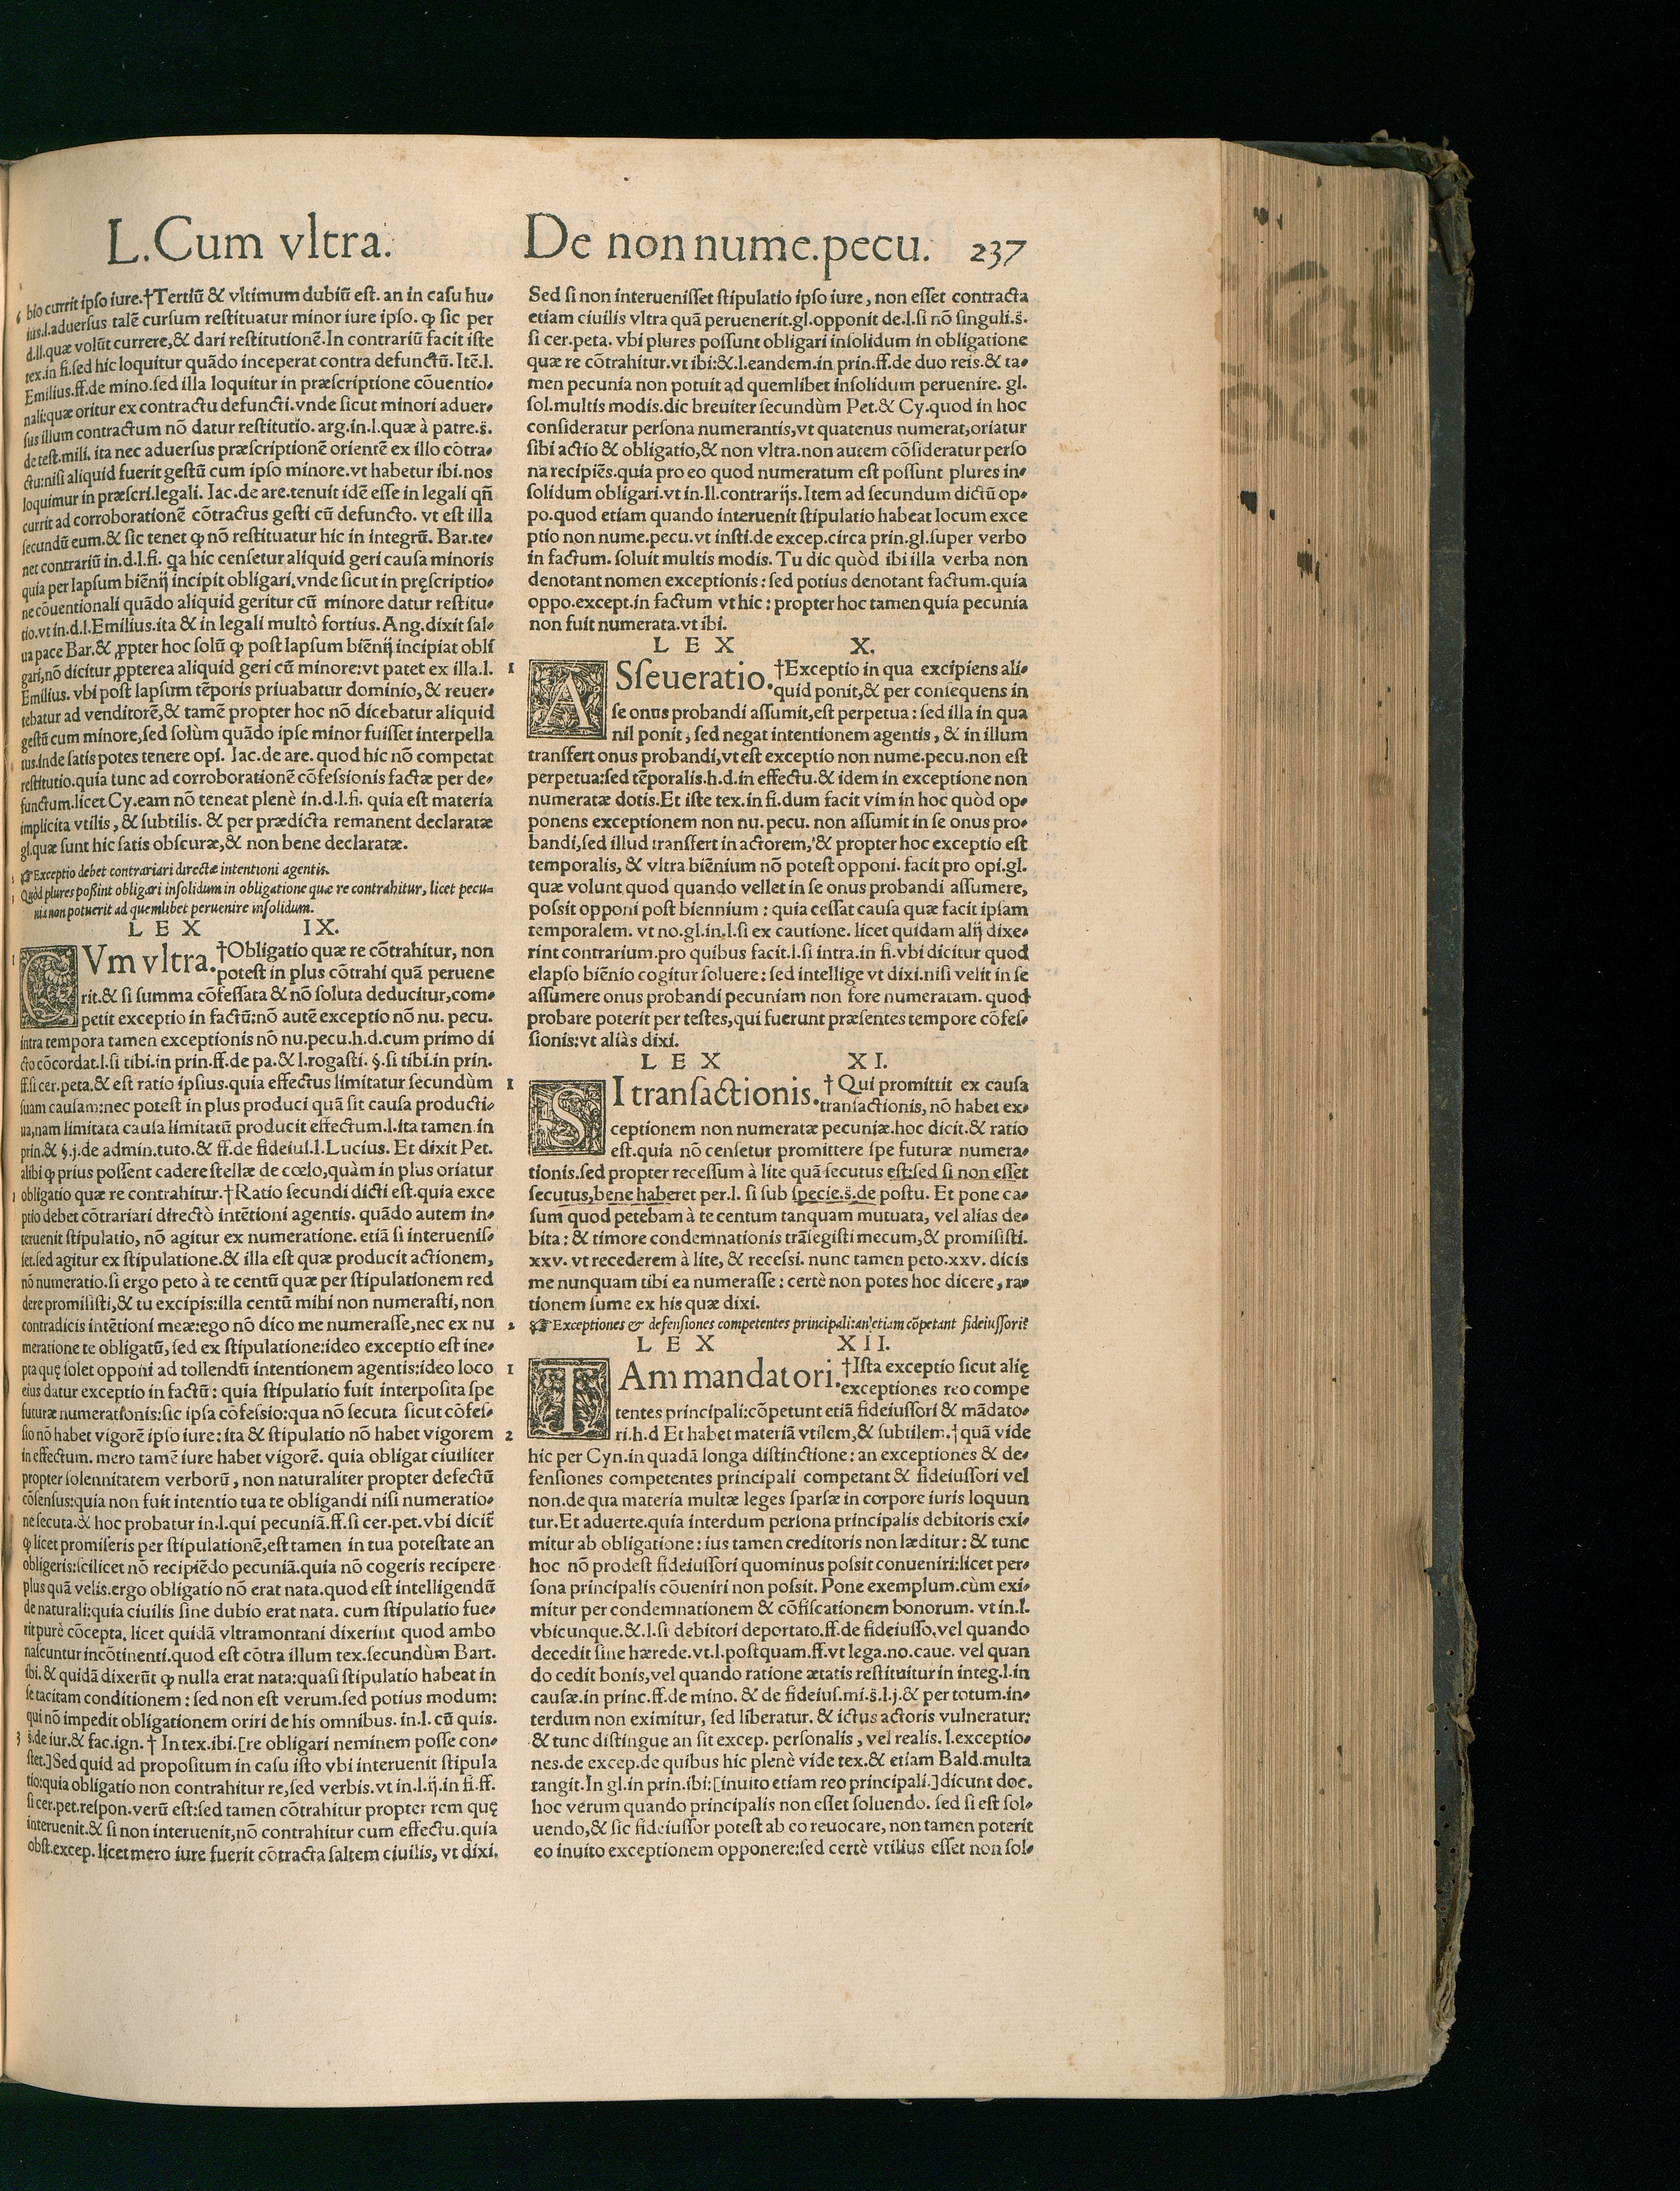 L.Cum vltra. De non nume.pecu. 237
bio currit ipso iure.†Tertiũ & vltimum dubiũ est. an in casu hu-
ius.l.aduersus talẽ cursum restituatur minor iure ipso. ꝙ sic per
d.ll.quæ volũt currere,& dari restitutionẽ.In contrariũ facit iste
tex.in fi.sed hic loquitur quãdo inceperat contra defunctũ. Itẽ.l.
Emilius.ff.de mino.sed illa loquitur in præscriptione cõuentio-
nali:quæ oritur ex contractu defuncti.vnde sicut minori aduer-
sus illum contractum nõ datur restitutio. arg.in.l.quæ à patre.s̃.
de test.mili. ita nec aduersus præscriptionẽ orientẽ ex illo cõtra-
ctu:nisi aliquid fuerit gestũ cum ipso minore.vt habetur ibi.nos
loquimur in præscri.legali. Iac.de are.tenuit idẽ esse in legali qñ
currit ad corroborationẽ cõtractus gesti cũ defuncto. vt est illa
secundũ eum.& sic tenet ꝙ nõ restituatur hic in integrũ. Bar.te-
net contrariũ in.d.l.fi. qa hic censetur aliquid geri causa minoris
quia per lapsum biẽnij incipit obligari,vnde sicut in pręscriptio-
ne cõuentionali quãdo aliquid geritur cũ minore datur restitu-
tio.vt in.d.l.Emilius.ita & in legali multò fortius. Ang.dixit sal-
ua pace Bar.& ꝓpter hoc solũ ꝙ post lapsum biẽnij incipiat obli
gari,nõ dicitur ꝓpterea aliquid geri cũ minore:vt patet ex illa.l.
Emilius. vbi post lapsum tẽporis priuabatur dominio, & reuer-
tebatur ad venditorẽ,& tamẽ propter hoc nõ dicebatur aliquid
gestũ cum minore,sed solùm quãdo ipse minor fuisset interpella
tus.inde satis potes tenere opi. Iac.de are. quod hic nõ competat
restitutio.quia tunc ad corroborationẽ cõfessionis factæ per de-
functum.licet Cy.eam nõ teneat plenè in.d.l.fi. quia est materia
implicita vtilis, & subtilis. & per prædicta remanent declaratæ
gl.quæ sunt hic satis obscuræ,& non bene declaratæ.
☞Exceptio debet contrariari directæ intentioni agentis.
Quòd plures poßint obligari insolidum in obligatione quæ re contrahitur, licet pecu-
nia non potuerit ad quemlibet peruenire insolidum.
LEX IX.
CVm vltra.†Obligatio quæ re cõtrahitur, non
potest in plus cõtrahi quã peruene
rit.& si summa cõfessata & nõ soluta deducitur,com-
petit exceptio in factũ:nõ autẽ exceptio nõ nu. pecu.
intra tempora tamen exceptionis nõ nu.pecu.h.d.cum primo di
cto cõcordat.l.si tibi.in prin.ff.de pa.& l.rogasti. §.si tibi.in prin.
ff.si cer.peta.& est ratio ipsius.quia effectus limitatur secundùm
suam causam:nec potest in plus produci quã sit causa producti-
ua,nam limitata causa limitatũ producit effectum.l.ita tamen in
prin.& §.j.de admin.tuto.& ff.de fideius.l.Lucius. Et dixit Pet.
alibi ꝙ prius possent cadere stellæ de cœlo,quàm in plus oriatur
obligatio quæ re contrahitur.†Ratio secundi dicti est.quia exce
ptio debet cõtrariari directò intẽtioni agentis. quãdo autem in-
teruenit stipulatio, nõ agitur ex numeratione. etiã si interuenis-
set.sed agitur ex stipulatione.& illa est quæ producit actionem,
nõ numeratio.si ergo peto à te centũ quæ per stipulationem red
dere promisisti,& tu excipis:illa centũ mihi non numerasti, non
contradicis intẽtioni meæ:ego nõ dico me numerasse,nec ex nu
meratione te obligatũ, sed ex stipulatione:ideo exceptio est ine-
pta quę solet opponi ad tollendũ intentionem agentis:ideo loco
eius datur exceptio in factũ: quia stipulatio fuit interposita spe
futuræ numerationis:sic ipsa cõfessio:qua nõ secuta sicut cõfes-
sio nõ habet vigorẽ ipso iure: ita & stipulatio nõ habet vigorem
in effectum. mero tamẽ iure habet vigorẽ. quia obligat ciuiliter
propter solennitatem verborũ, non naturaliter propter defectũ
cõsensus:quia non fuit intentio tua te obligandi nisi numeratio-
ne secuta.& hoc probatur in.l.qui pecuniã.ff.si cer.pet.vbi dicit̃
ꝙ licet promiseris per stipulationẽ,est tamen in tua potestate an
obligeris:scilicet nõ recipiẽdo pecuniã.quia nõ cogeris recipere
plus quã velis.ergo obligatio nõ erat nata.quod est intelligendũ
de naturali:quia ciuilis sine dubio erat nata. cum stipulatio fue-
rit purè cõcepta. licet quidã vltramontani dixerint quod ambo
nascuntur incõtinenti.quod est cõtra illum tex.secundùm Bart.
ibi. & quidã dixerũt ꝙ nulla erat nata:quasi stipulatio habeat in
se tacitam conditionem: sed non est verum.sed potius modum:
qui nõ impedit obligationem oriri de his omnibus. in.l. cũ quis.
s̃.de iur.& fac.ign. † In tex.ibi.[re obligari neminem posse con-
stet.]Sed quid ad propositum in casu isto vbi interuenit stipula
tio:quia obligatio non contrahitur re,sed verbis.vt in.l.ij.in fi.ff.
si cer.pet.respon.verũ est:sed tamen cõtrahitur propter rem quę
interuenit.& si non interuenit,nõ contrahitur cum effectu.quia
obst.excep. licet mero iure fuerit cõtracta saltem ciuilis, vt dixi.
Sed si non interuenisset stipulatio ipso iure, non esset contracta
etiam ciuilis vltra quã peruenerit.gl.opponit de.l.si nõ singuli.s̃.
si cer.peta. vbi plures possunt obligari insolidum in obligatione
quæ re cõtrahitur.vt ibi:&.l.eandem.in prin.ff.de duo reis.& ta-
men pecunia non potuit ad quemlibet insolidum peruenire. gl.
sol.multis modis.dic breuiter secundùm Pet.& Cy.quod in hoc
consideratur persona numerantis,vt quatenus numerat,oriatur
sibi actio & obligatio,& non vltra.non autem cõsideratur perso
na recipiẽs.quia pro eo quod numeratum est possunt plures in-
solidum obligari.vt in.ll.contrarijs.Item ad secundum dictũ op-
po.quod etiam quando interuenit stipulatio habeat locum exce
ptio non nume.pecu.vt insti.de excep.circa prin.gl.super verbo
in factum. soluit multis modis. Tu dic quòd ibi illa verba non
denotant nomen exceptionis: sed potius denotant factum.quia
oppo.except.in factum vt hic: propter hoc tamen quia pecunia
non fuit numerata.vt ibi.
LEX X.
ASseueratio.†Exceptio in qua excipiens ali-
quid ponit,& per consequens in
se onus probandi assumit,est perpetua: sed illa in qua
nil ponit, sed negat intentionem agentis, & in illum
transfert onus probandi,vt est exceptio non nume.pecu.non est
perpetua:sed tẽporalis.h.d.in effectu.& idem in exceptione non
numeratæ dotis.Et iste tex.in fi.dum facit vim in hoc quòd op-
ponens exceptionem non nu. pecu. non assumit in se onus pro-
bandi,sed illud transfert in actorem,& propter hoc exceptio est
temporalis, & vltra biẽnium nõ potest opponi. facit pro opi.gl.
quæ volunt quod quando vellet in se onus probandi assumere,
possit opponi post biennium: quia cessat causa quæ facit ipsam
temporalem. vt no.gl.in.l.si ex cautione. licet quidam alij dixe-
rint contrarium.pro quibus facit.l.si intra.in fi.vbi dicitur quod
elapso biẽnio cogitur soluere: sed intellige vt dixi.nisi velit in se
assumere onus probandi pecuniam non fore numeratam. quod
probare poterit per testes,qui fuerunt præsentes tempore cõfes-
sionis:vt aliàs dixi.
LEX XI.
SI transactionis.†Qui promittit ex causa
transactionis, nõ habet ex-
ceptionem non numeratæ pecuniæ.hoc dicit.& ratio
est.quia nõ censetur promittere spe futuræ numera-
tionis.sed propter recessum à lite quã secutus est:sed si non esset
secutus,bene haberet per.l. si sub specie.s̃.de postu. Et pone ca-
sum quod petebam à te centum tanquam mutuata, vel alias de-
bita: & timore condemnationis trãsegisti mecum,& promisisti.
xxv. vt recederem à lite, & recessi. nunc tamen peto.xxv. dicis
me nunquam tibi ea numerasse: certè non potes hoc dicere, ra-
tionem sume ex his quæ dixi.
☞Exceptiones & defensiones competentes principali:an etiam cõpetant fideiussori?
LEX XII.
TAm mandatori.†Ista exceptio sicut alię
exceptiones reo compe
tentes principali:cõpetunt etiã fideiussori & mãdato-
ri.h.d Et habet materiã vtilem,& subtilem.†quã vide
hic per Cyn.in quadã longa distinctione: an exceptiones & de-
fensiones competentes principali competant & fideiussori vel
non.de qua materia multæ leges sparsæ in corpore iuris loquun
tur.Et aduerte.quia interdum persona principalis debitoris exi-
mitur ab obligatione: ius tamen creditoris non læditur: & tunc
hoc nõ prodest fideiussori quominus possit conueniri:licet per-
sona principalis cõueniri non possit. Pone exemplum.cùm exi-
mitur per condemnationem & cõfiscationem bonorum. vt in.l.
vbicunque.&.l.si debitori deportato.ff.de fideiusso.vel quando
decedit sine hærede.vt.l.postquam.ff.vt lega.no.caue. vel quan
do cedit bonis,vel quando ratione ætatis restituitur in integ.l.in
causæ.in princ.ff.de mino. & de fideius.mi.s̃.l.j.& per totum.in-
terdum non eximitur, sed liberatur. & ictus actoris vulneratur:
& tunc distingue an sit excep. personalis, vel realis. l.exceptio-
nes.de excep.de quibus hic plenè vide tex.& etiam Bald.multa
tangit.In gl.in prin.ibi:[inuito etiam reo principali.]dicunt doc.
hoc verum quando principalis non esset soluendo. sed si est sol-
uendo,& sic fideiussor potest ab eo reuocare, non tamen poterit
eo inuito exceptionem opponere:sed certè vtilius esset non sol-